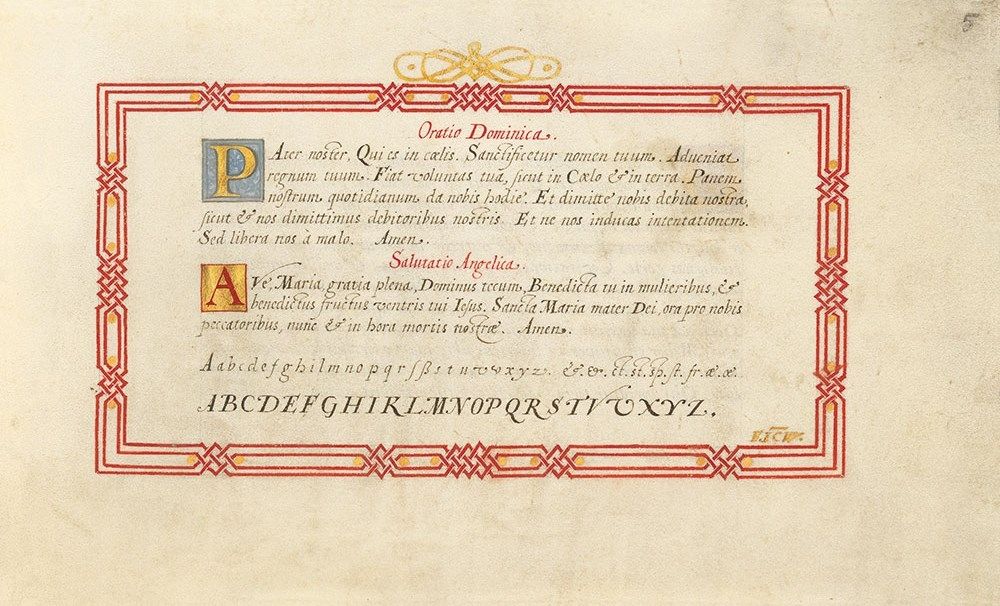 5
Oratio Dominica.
PAter noster, Qui es in cœlis. Sanctificetur nomen tuum. Adveniat
regnum tuum. Fiat voluntas tuã, sicut in Cœlo & in terra. Panem
nostrum quotidianum da nobis hodie. Et dimitte nobis debita nostra,
sicut & nos dimittimus debitoribus nostris. Et ne nos inducas intentationem.
Sed libera nos à malo. Amen.
Salutatio Angelica.
AVe, Maria, gratia plena, Dominus tecum, Benedicta tu in mulieribus, &
benedictus fructus ventris tui Iesus. Sancta Maria mater Dei, ora pro nobis
peccatoribus, nunc & in hora mortis nostræ. Amen.
A a b c d e f g h i l m n o p q r ſ ß s t u v v x y z. & &. ct. st. sp. ſt. fr. æ. œ.
ABCDEFGHIKLMNOPQRSTVUXYZ.